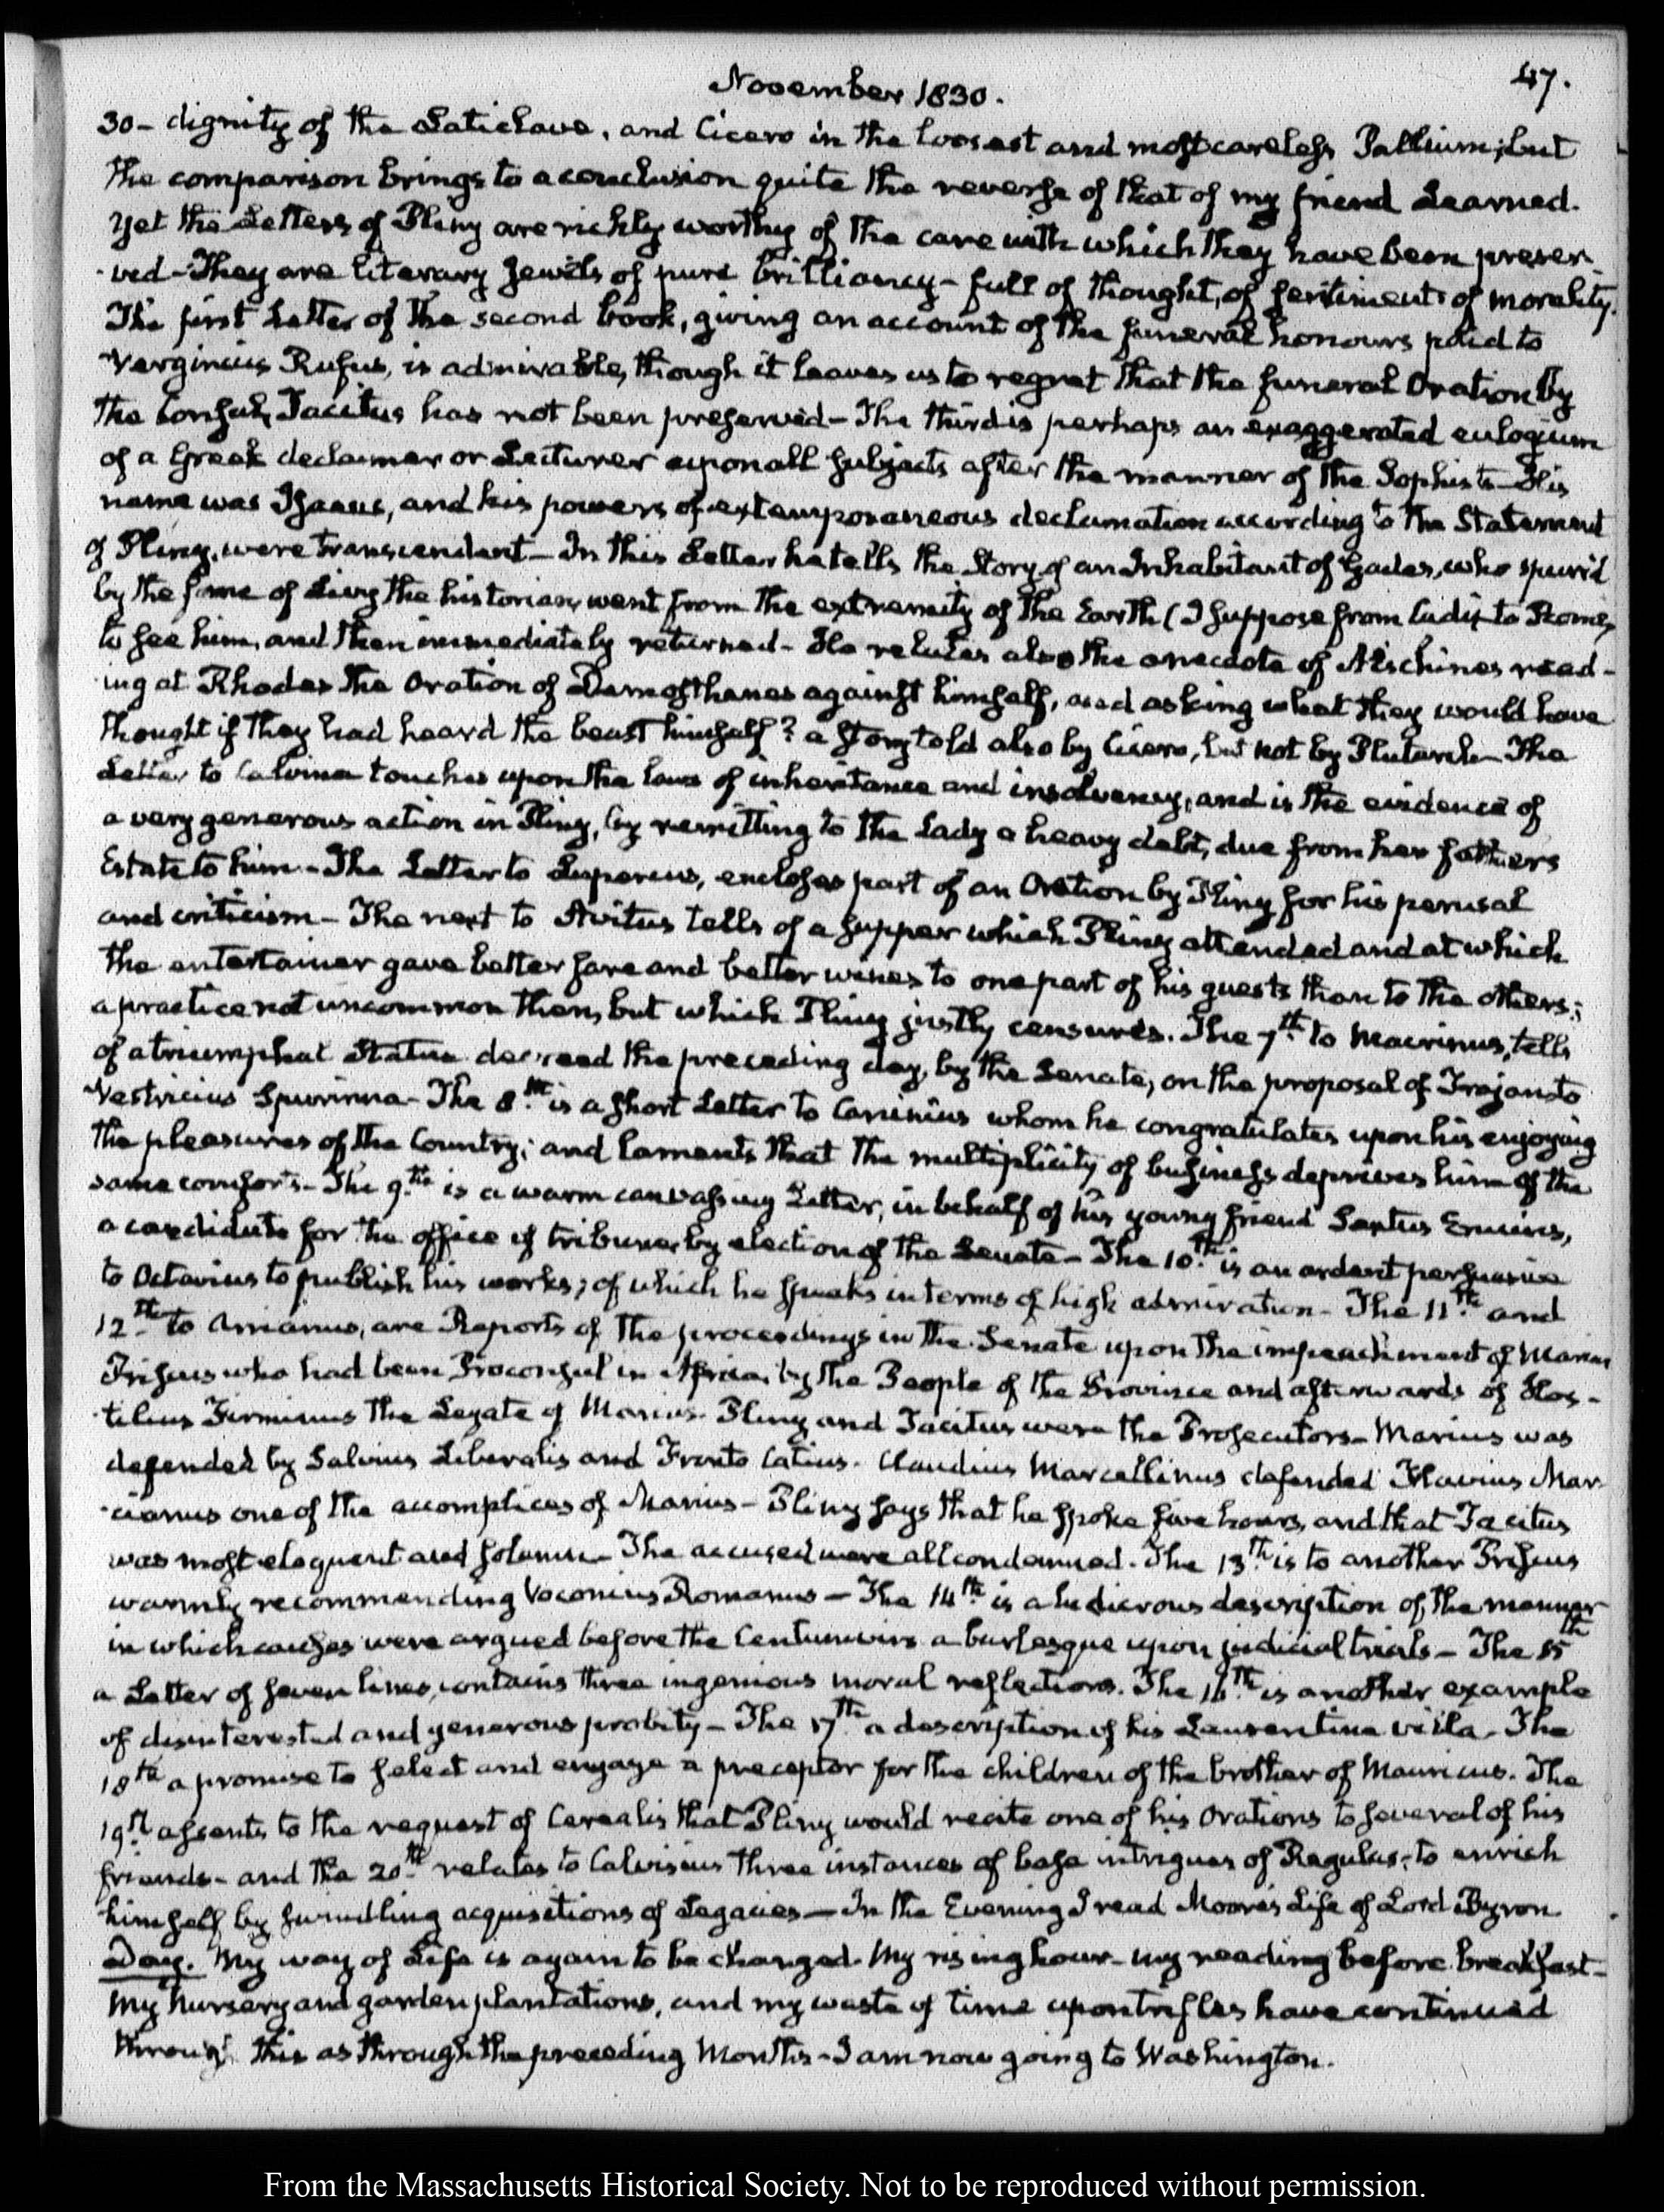 November 1830.
47.
30 - dignity of the Laticlave, and Cicero in the loosest and most careless Pallium; but
the comparison brings to a conclusion quite the reverse of that of my friend Learned.
Yet the Letters of Pliny are richly worthy of the care with which they have been preser-
-ved - They are literary jewels of pure brilliancy - full of thought, of sentiment of morality.
The first Letter of the second book, giving an account of the funeral honours paid to
Verginius Rufus, is admirable, though it leaves us to regret that the funeral Oration by
the Consul, Tacitus has not been preserved - The third is perhaps an exaggerated eulogium
of a Greek declaimer or Lecturer upon all subjects after the manner of the Sophists - His
name was Isaeus, and his powers of extemporaneous declamation according to the Statement
of Pliny, were transcendant - In this Letter he tells the Story of an Inhabitant of Gades, who spurr'd
by the fame of Livy the historian, went from the extremity of the Earth (I suppose from Cadiz to Rome,
to see him, and then immediately returned - He relates also the anecdote of Æschines read-
-ing at Rhodes the Oration of Demosthenes against himself, and asking what they would have
thought if they had heard the beast himself? a story told also by Cicero, but not by Plutarch - The
Letter to Calvina touches upon the laws of inheritance and insolvency, and is the evidence of
a very generous action in Pliny, by remitting to the Lady a heavy debt, due from her fathers
Estate to him - The Letter to Lupercus, encloses part of an Oration by Pliny for his perusal
and criticism - The next to Avitus tells of a supper which Pliny attended and at which
the entertainer gave better fare and better wines to one part of his guests than to the others;
a practice not uncommon then, but which Pliny justly censures. The 7th to Macrinus, tells
of a triumphal Statue decreed the preceding day, by the Senate, on the proposal of Trajan to
Vestricius Spurinna - The 8th is a short Letter to Caninius whom he congratulates upon his enjoying
the pleasures of the Country; and laments that the multiplicity of business deprives him of the
same comforts - The 9th is a warm canvassing Letter, in behalf of his young friend Sextus Erucius,
a candidate for the office of tribune, by election of the Senate - The 10th is an ardent persuasive
to Octavius to publish his works; of which he speaks in terms of high admiration - The 11th and
12th to Arrianus, are Reports of the proceedings in the Senate upon the impeachment of Marius
Priscus who had been Proconsul in Africa, by the People of the Province and afterwards of Hos-
-tilius Firminus the Legate of Marius. Pliny and Tacitus were the Prosecutors - Marius was
defended by Salvius Liberalis and Fronto Catius. Claudius Marcellinus defended Flavius Mar-
-cianus one of the accomplices of Marius - Pliny says that he spoke five hours, and that Tacitus
was most eloquent and solemn - The accused were all condemned. The 13th is to another Priscus
warmly recommending Voconius Romanus - The 14th is a ludicrous description of the manner
in which causes were argued before the Centumvirs a burlesque upon judicial trials - The 15th
a Letter of seven lines, contains three ingenious moral reflections. The 16th is another example
of disinterested and generous probity - The 17th a description of his Laurentine villa - The
18th a promise to select and engage a preceptor for the children of the brother of Mauricus. The
19th assents to the request of Cerealis that Pliny would recite one of his Orations to several of his
friends - and the 20th relates to Calvisius three instances of base intrigues of Regulus, to enrich
himself by swindling acquisitions of Legacies - In the Evening I read Moore's Life of Lord Byron
Day. My way of Life is again to be changed. My rising hour - my reading before breakfast -
my nursery and garden plantations, and my waste of time upon trifles have continued
through this as through the preceding Months - I am now going to Washington.
From the Massachusetts Historical Society. Not to be reproduced without permission.